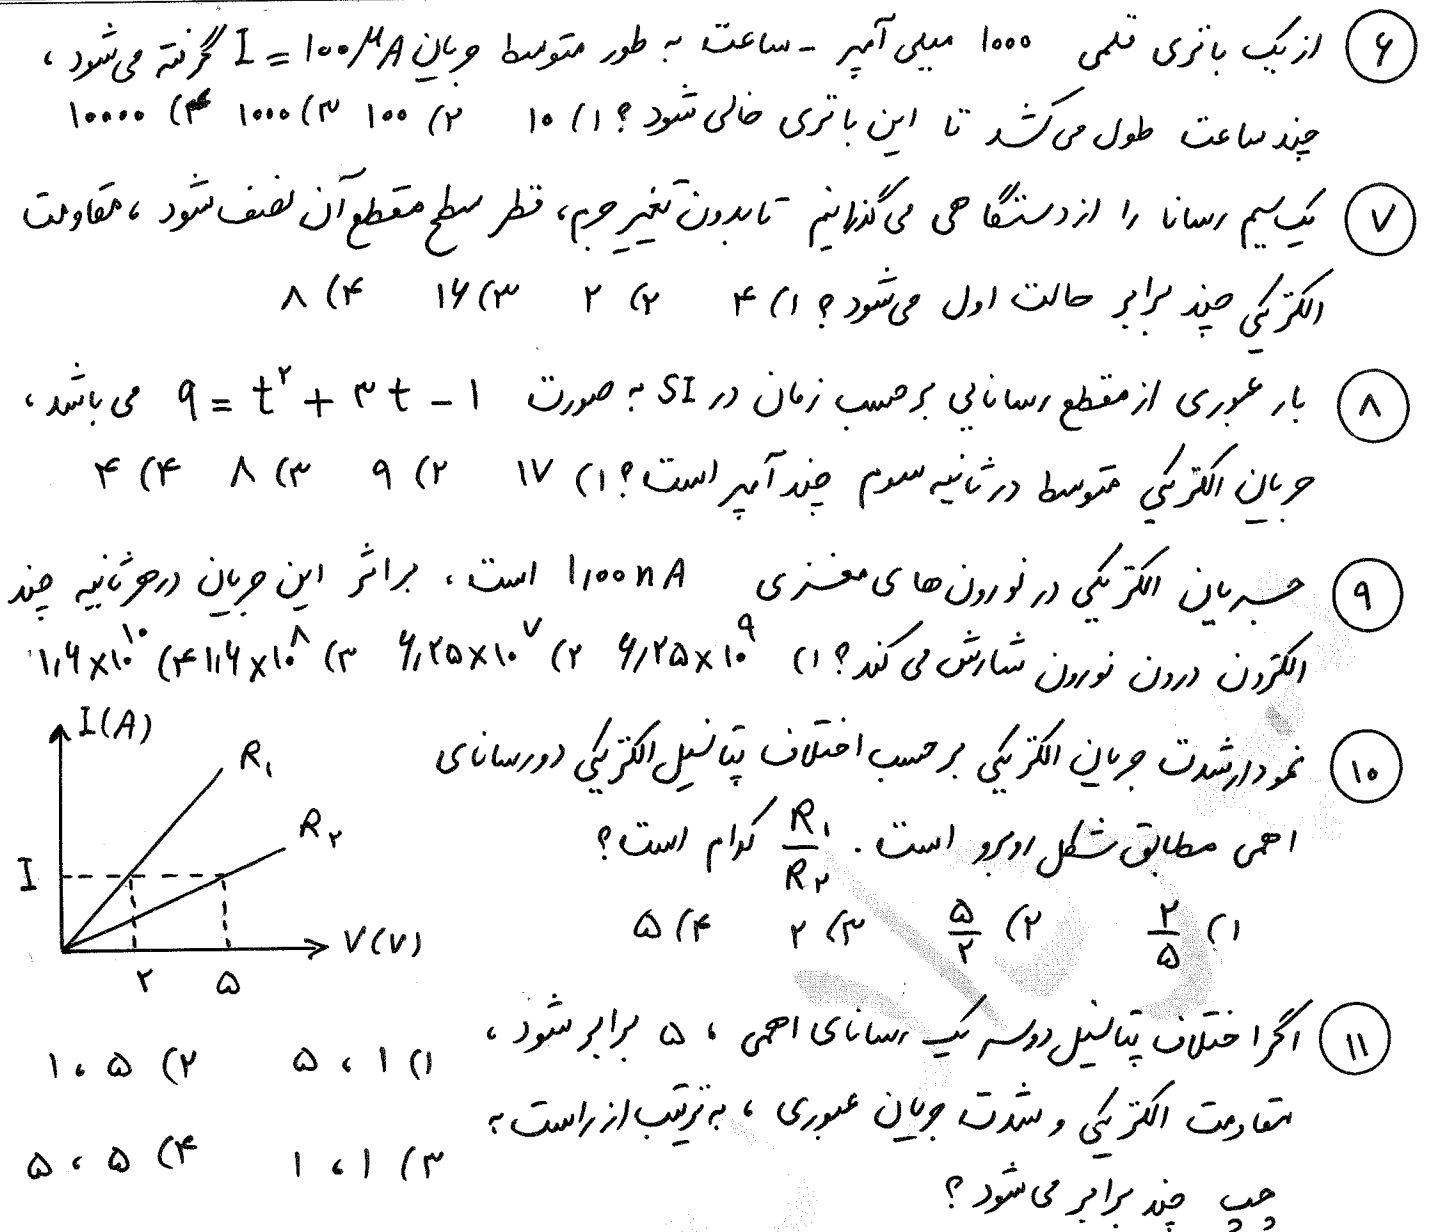 ۶ از یک باتری قلمی ۱۰۰۰ میلی آمپر - ساعت به طور متوسط جریان I = ۱۰۰ μA گرفته می‌شود ،
چند ساعت طول می‌کشد تا این باتری خالی شود ؟ ۱) ۱۰ ۲) ۱۰۰ ۳) ۱۰۰۰ ۴) ۱۰۰۰۰
۷ یک سیم رسانا را از دستگاهی می‌گذرانیم تا بدون تغییر جرم، قطر سطح مقطع آن نصف شود ، مقاومت
الکتریکی چند برابر حالت اول می‌شود ؟ ۱) ۴ ۲) ۲ ۳) ۱۶ ۴) ۸
۸ بار عبوری از مقطع رسانایی برحسب زمان در SI به صورت q = t^۲ + ۳t - ۱ می باشد ،
جریان الکتریکی متوسط در ثانیه سوم چند آمپر است ؟ ۱) ۱۷ ۲) ۹ ۳) ۸ ۴) ۴
۹ جریان الکتریکی در نورون های مغزی ۱٫۰۰ nA است ، براثر این جریان درهر ثانیه چند
الکترون درون نورون شارش می کند ؟ ۱) ۶٫۲۵×۱۰^۹ ۲) ۶٫۲۵×۱۰^۷ ۳) ۱٫۶×۱۰^۸ ۴) ۱٫۶×۱۰^۱۰
۱۰ نمودار شدت جریان الکتریکی بر حسب اختلاف پتانسیل الکتریکی دو رسانای
اهمی مطابق شکل روبرو است . R۱/R۲ کدام است ؟
۱) ۲/۵ ۲) ۵/۲ ۳) ۲ ۴) ۵
I(A)
R۱
R۲
I
V(V)
۲ ۵
۱۱ اگر اختلاف پتانسیل دوسر یک رسانای اهمی ، ۵ برابر شود ،
مقاومت الکتریکی و شدت جریان عبوری ، به ترتیب از راست به
چپ چند برابر می شود ؟
۱) ۱ ، ۵ ۲) ۵ ، ۱
۳) ۱ ، ۱ ۴) ۵ ، ۵